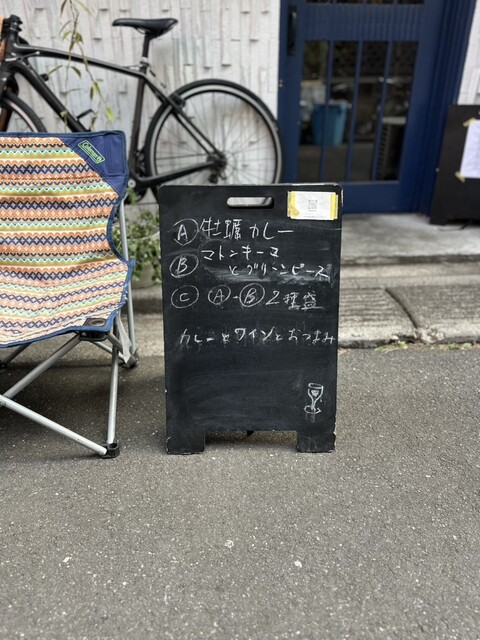 Coleman
Ⓐ 牡蠣カレー
Ⓑ マトンキーマ
とグリーンピース
Ⓒ Ⓐ・Ⓑ 2種盛
カレーとワインとおつまみ